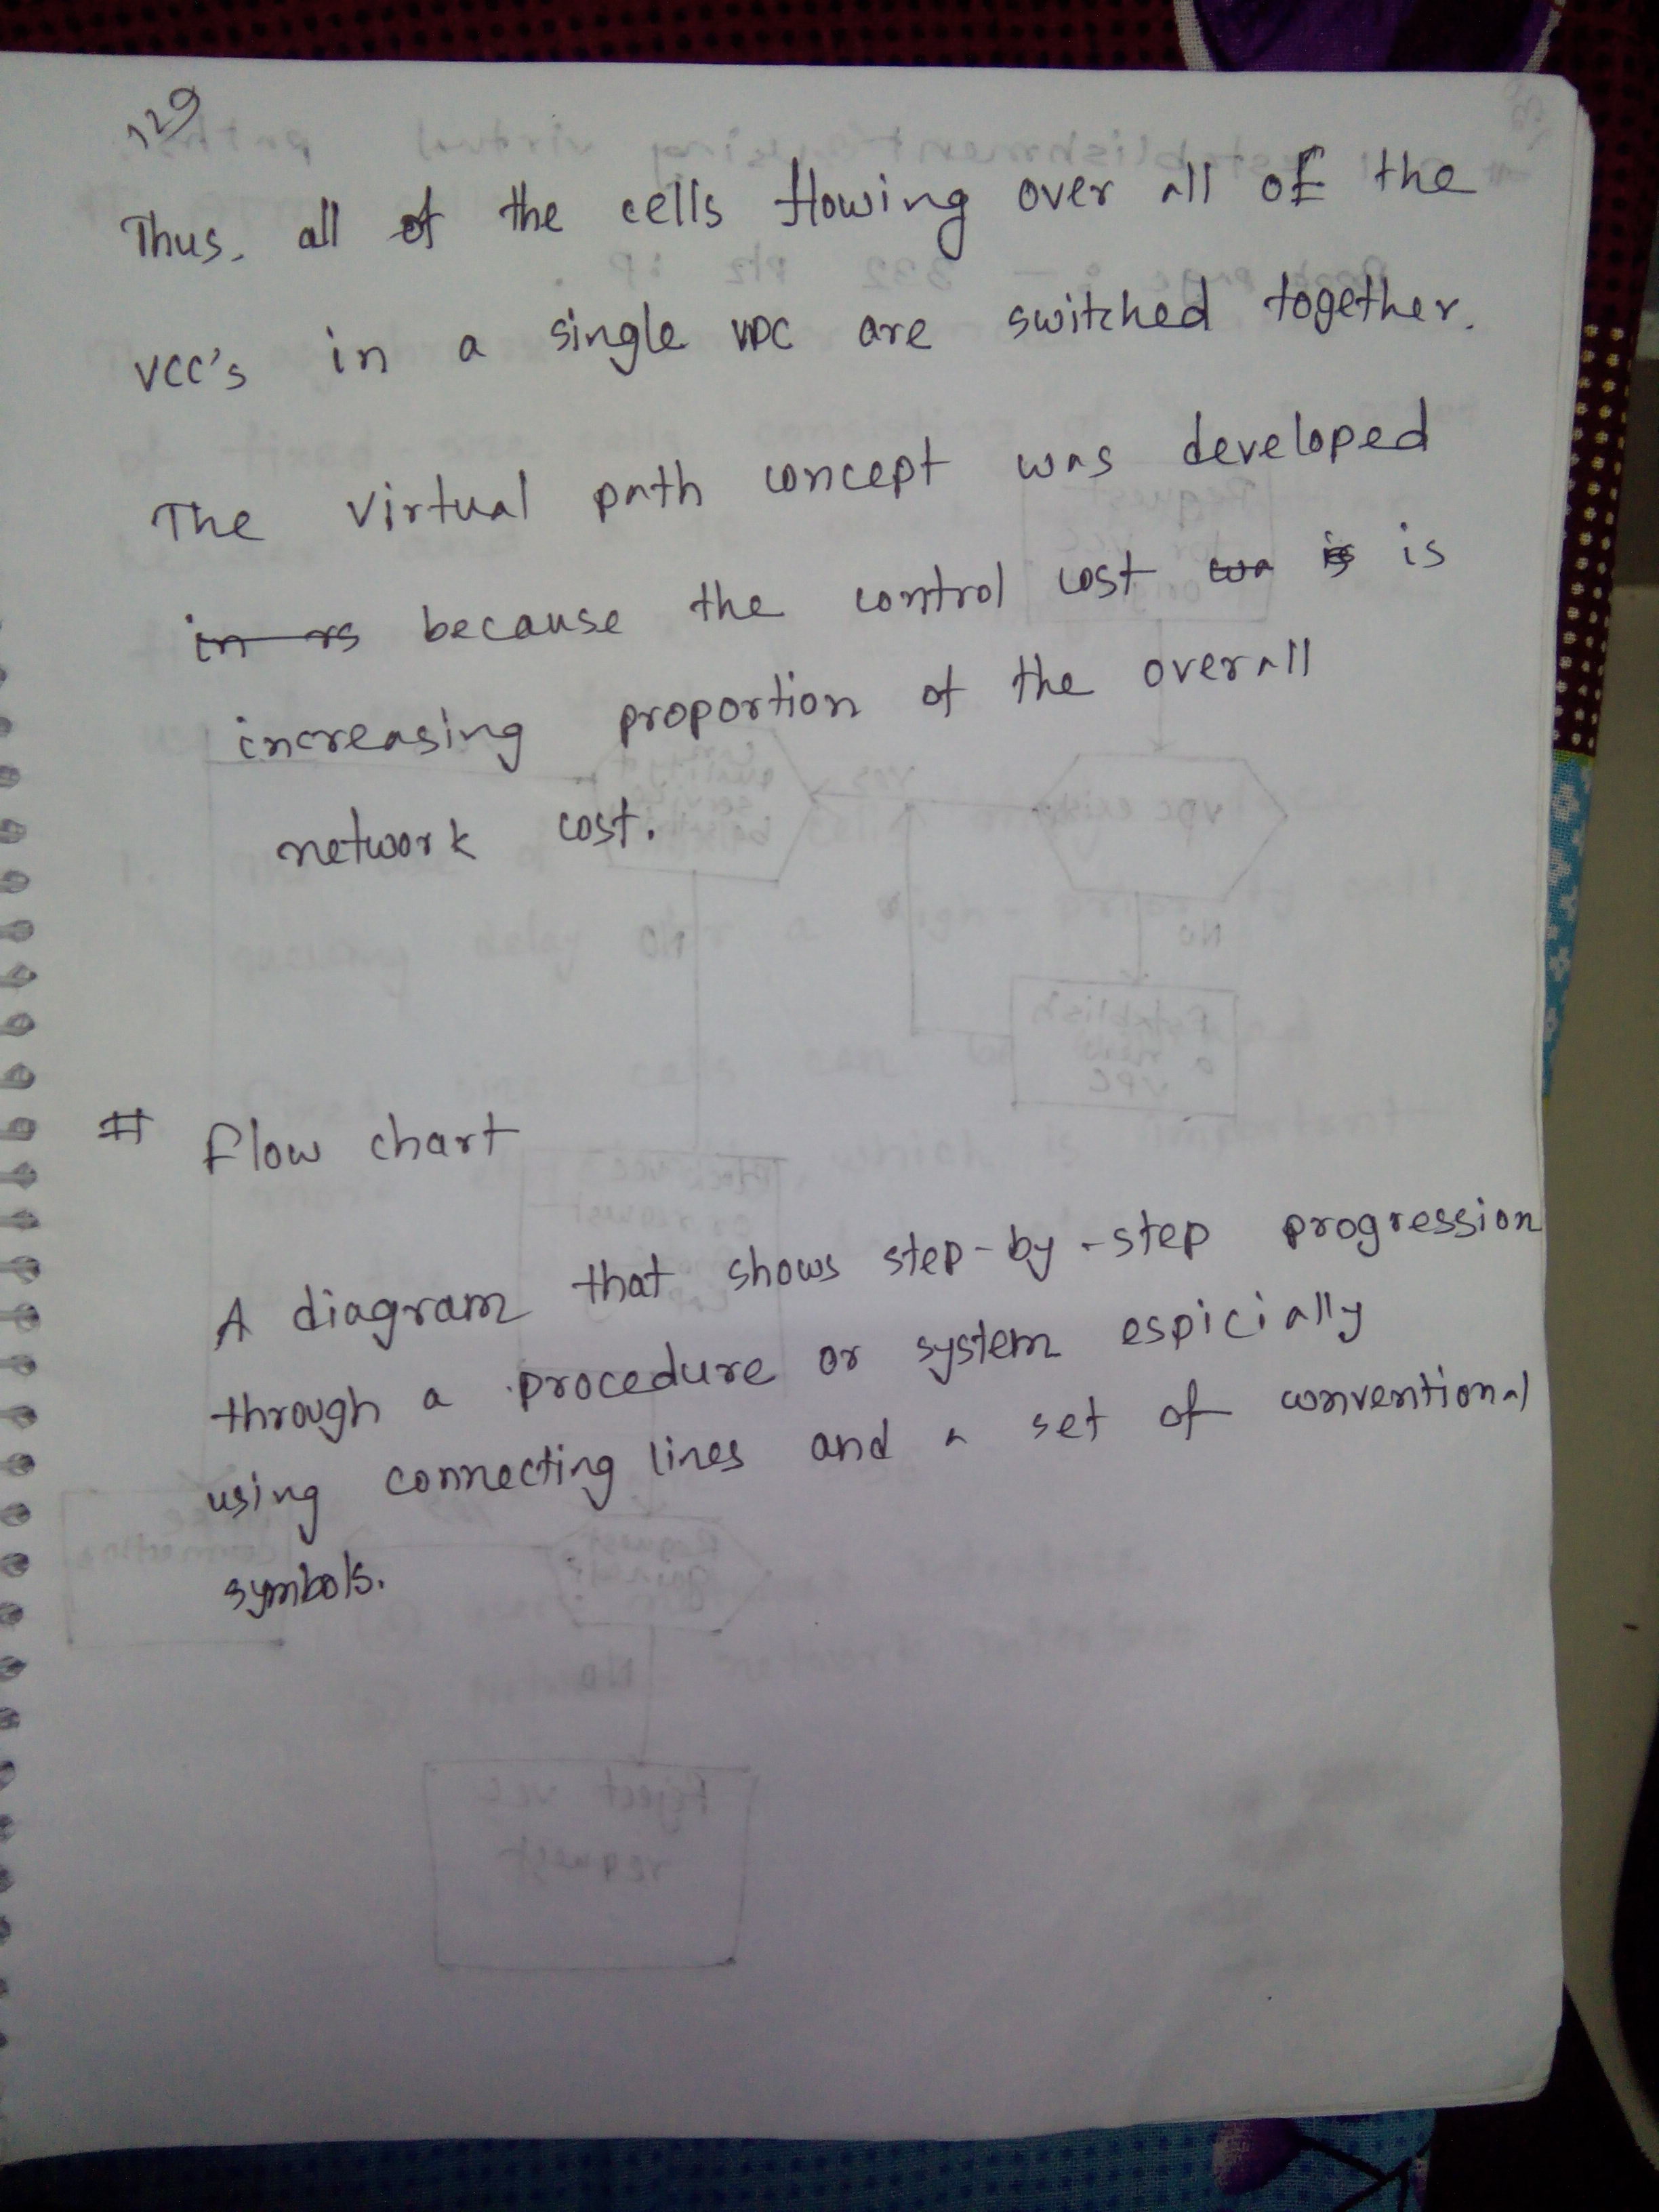 129
Thus, all of the cells flowing over all of the
VCC's in a single VPC are switched together.
The virtual path concept was developed
because the control cost is
increasing proportion of the overall
network cost.
# Flow chart
A diagram that shows step-by-step progression
through a procedure or system espicially
using connecting lines and a set of conventional
symbols.